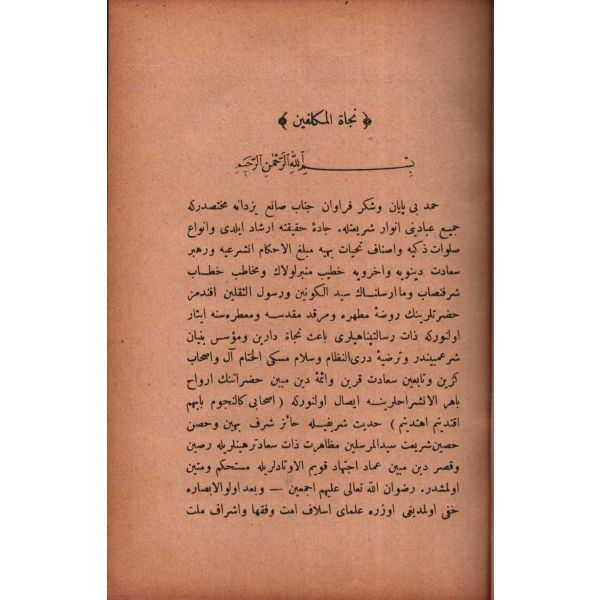 ﴿ نجاة المكلفين ﴾
بسم الله الرحمن الرحيم
حمد بی پایان وشکر فراوان جناب صانع یزدانه مختصدرکه
جمیع عبادینی انوار شریعتله. جادۀ حقیقته ارشاد ایلدی وانواع
صلوات ذکیه واصناف تحیات بهیه مبلغ الاحکام الشرعیه ورهبر
سعادت دینویه واخرویه خطیب منبرلولاك ومخاطب خطــاب
شرفنصاب وما ارسلناك سید الکونین ورسول الثقلین افندمز
حضرتلرینك روضۀ مطهره ومرقد مقدســه ومعطره سنه ایثار
اولنورکه ذات رسالتپناهیلری باعث نجاة دارین ومؤسس بنیان
شرع مبیندر وترضیۀ دری النظام وسلام مسکی الختام آل واصحاب
کزین وتابعین سعادت قرین وائمۀ دین مبین حضراتنك ارواح
باهر الانشراحلرینــه ایصال اولنورکه ( اصحابی کالنجوم بایهم
اقتدیتم اهتدیتم ) حدیث شریفیـله حائـز شرف بهین وحصن
حصین شریعت سیدالمرسلین مظاهرت ذات سعادترهینلریله رصین
وقصر دین مبین عماد اجتهاد قویم الاوتادلریله مستحکم ومتین
اولمشدر. رضوان الله تعالی علیهم اجمعین — وبعد اولوالابصاره
خفی اولمدیغی اوزره علمای اسلاف امت وفقها واشراف ملت